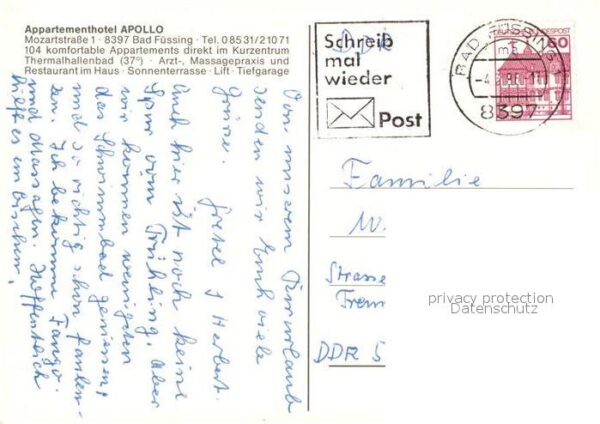 Appartementhotel APOLLO
Mozartstraße 1 · 8397 Bad Füssing · Tel. 0 85 31/2 10 71
104 komfortable Appartements direkt im Kurzentrum
Thermalhallenbad (37°) · Arzt-, Massagepraxis und
Restaurant im Haus · Sonnenterrasse · Lift · Tiefgarage
Von unserem Kururlaub
senden wir Euch viele
Grüsse.
Gretel & Herbert.
Auch hier ist noch keine
Spur vom Frühling. Aber
wir können wenigstens
das Schwimmbad geniessen,
und so richtig schön faulen-
zen. Ich bekomme Fango
und Massagen. Hoffentlich
hilft es ein bischen,
DDR
Schreib
mal
wieder
Post
BAD FÜSSING
8397
60
Familie
W.
Strasse
DDR 5
privacy protection
Datenschutz